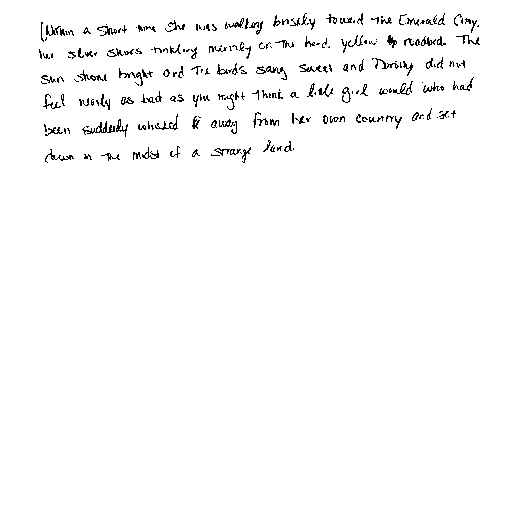 Within a short time she was walking briskly toward the Emerald City,
her silver shoes tinkling merrily on the hard, yellow roadbed. The
sun shone bright and the birds sang sweet and Dorothy did not
feel nearly as bad as you might think a little girl would who had
been suddenly whisked away from her own country and set
down in the midst of a strange land.